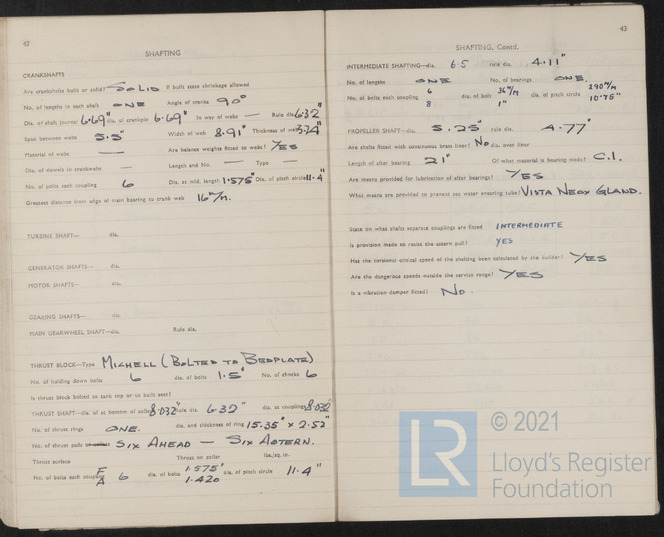 42
SHAFTING
CRANKSHAFTS
Are crankshafts built or solid? SOLID If built state shrinkage allowed
No. of lengths in each shaft ONE Angle of cranks 90°
Dia. of shaft journal 6.69" dia. of crankpin 6.69" In way of webs — Rule dia. 6.32"
Span between webs 5.5" Width of web 8.91" Thickness of web 3.74"
Material of webs — Are balance weights fitted to webs? YES
Dia. of dowels in crankwebs — Length and No. — Type —
No. of bolts each coupling 6 Dia. at mid. length 1.575" Dia. of pitch circle 11.4"
Greatest distance from edge of main bearing to crank web 16 M/M.
TURBINE SHAFT— dia.
GENERATOR SHAFTS— dia.
MOTOR SHAFTS— dia.
GEARING SHAFTS— dia.
MAIN GEARWHEEL SHAFT—dia. Rule dia.
THRUST BLOCK—Type MICHELL (BOLTED TO BEDPLATE)
No. of holding down bolts 6 dia. of bolts 1.5" No. of chocks 6
Is thrust block bolted to tank top or to built seat?
THRUST SHAFT—dia. of at bottom of collar 8.032" Rule dia. 6.32" dia. at couplings 8.032"
No. of thrust rings ONE. dia. and thickness of ring 15.35" x 2.52"
No. of thrust pads SIX AHEAD — SIX ASTERN.
Thrust surface Thrust on collar lbs./sq. in.
No. of bolts each coupling F A 6 dia. of bolts 1.575" 1.420 dia. of pitch circle 11.4"
43
SHAFTING, Contd.
INTERMEDIATE SHAFTING—dia. 6.5 rule dia. 4.11"
No. of lengths ONE No. of bearings ONE.
No. of bolts each coupling 6 8 dia. of bolt 36 M/M 1" dia. of pitch circle 290 M/M 10.75"
PROPELLER SHAFT—dia. 5.25" rule dia. 4.77"
Are shafts fitted with continuous brass liner? No dia. over liner
Length of after bearing 21" Of what material is bearing made? C.I.
Are means provided for lubrication of after bearing? YES
What means are provided to prevent sea water entering tube? VISTA NEOX GLAND.
State on what shafts separate couplings are fitted INTERMEDIATE
Is provision made to resist the astern pull? YES
Has the torsional critical speed of the shafting been calculated by the builder? YES
Are the dangerous speeds outside the service range? YES
Is a vibration damper fitted? No.
© 2021
LR
Lloyd's Register
Foundation